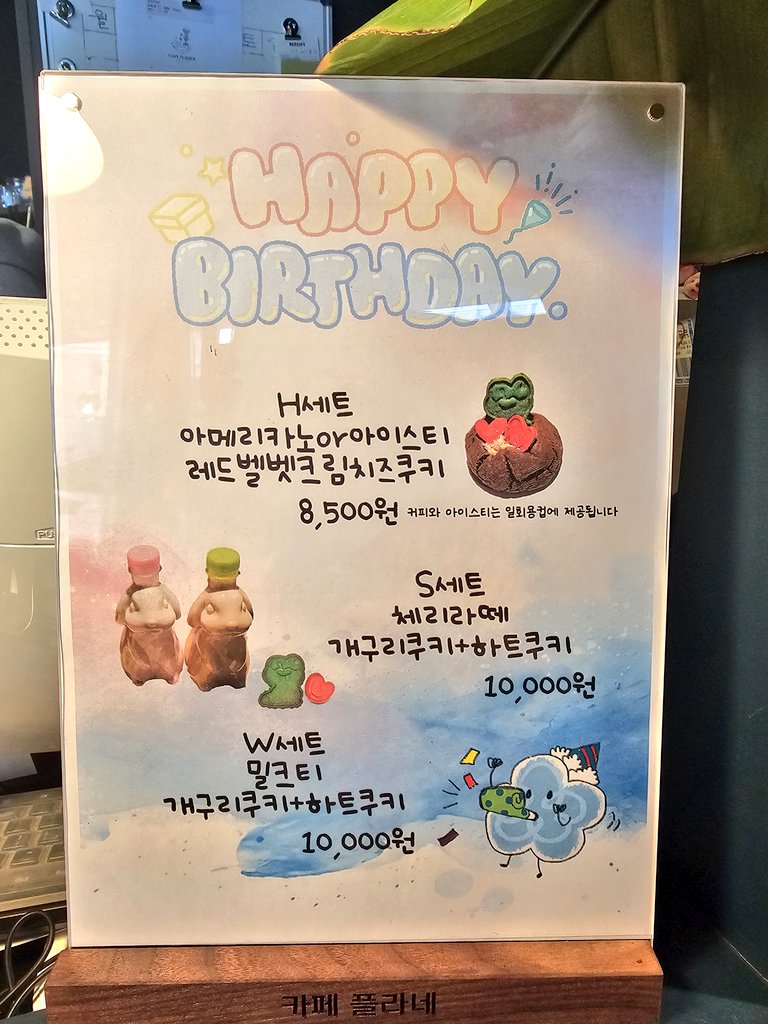 HAPPY
BIRTHDAY.
H세트
아메리카노or아이스티
레드벨벳크림치즈쿠키
8,500원 커피와 아이스티는 일회용컵에 제공됩니다
S세트
체리라떼
개구리쿠키+하트쿠키
10,000원
W세트
밀크티
개구리쿠키+하트쿠키
10,000원
카페 플라네